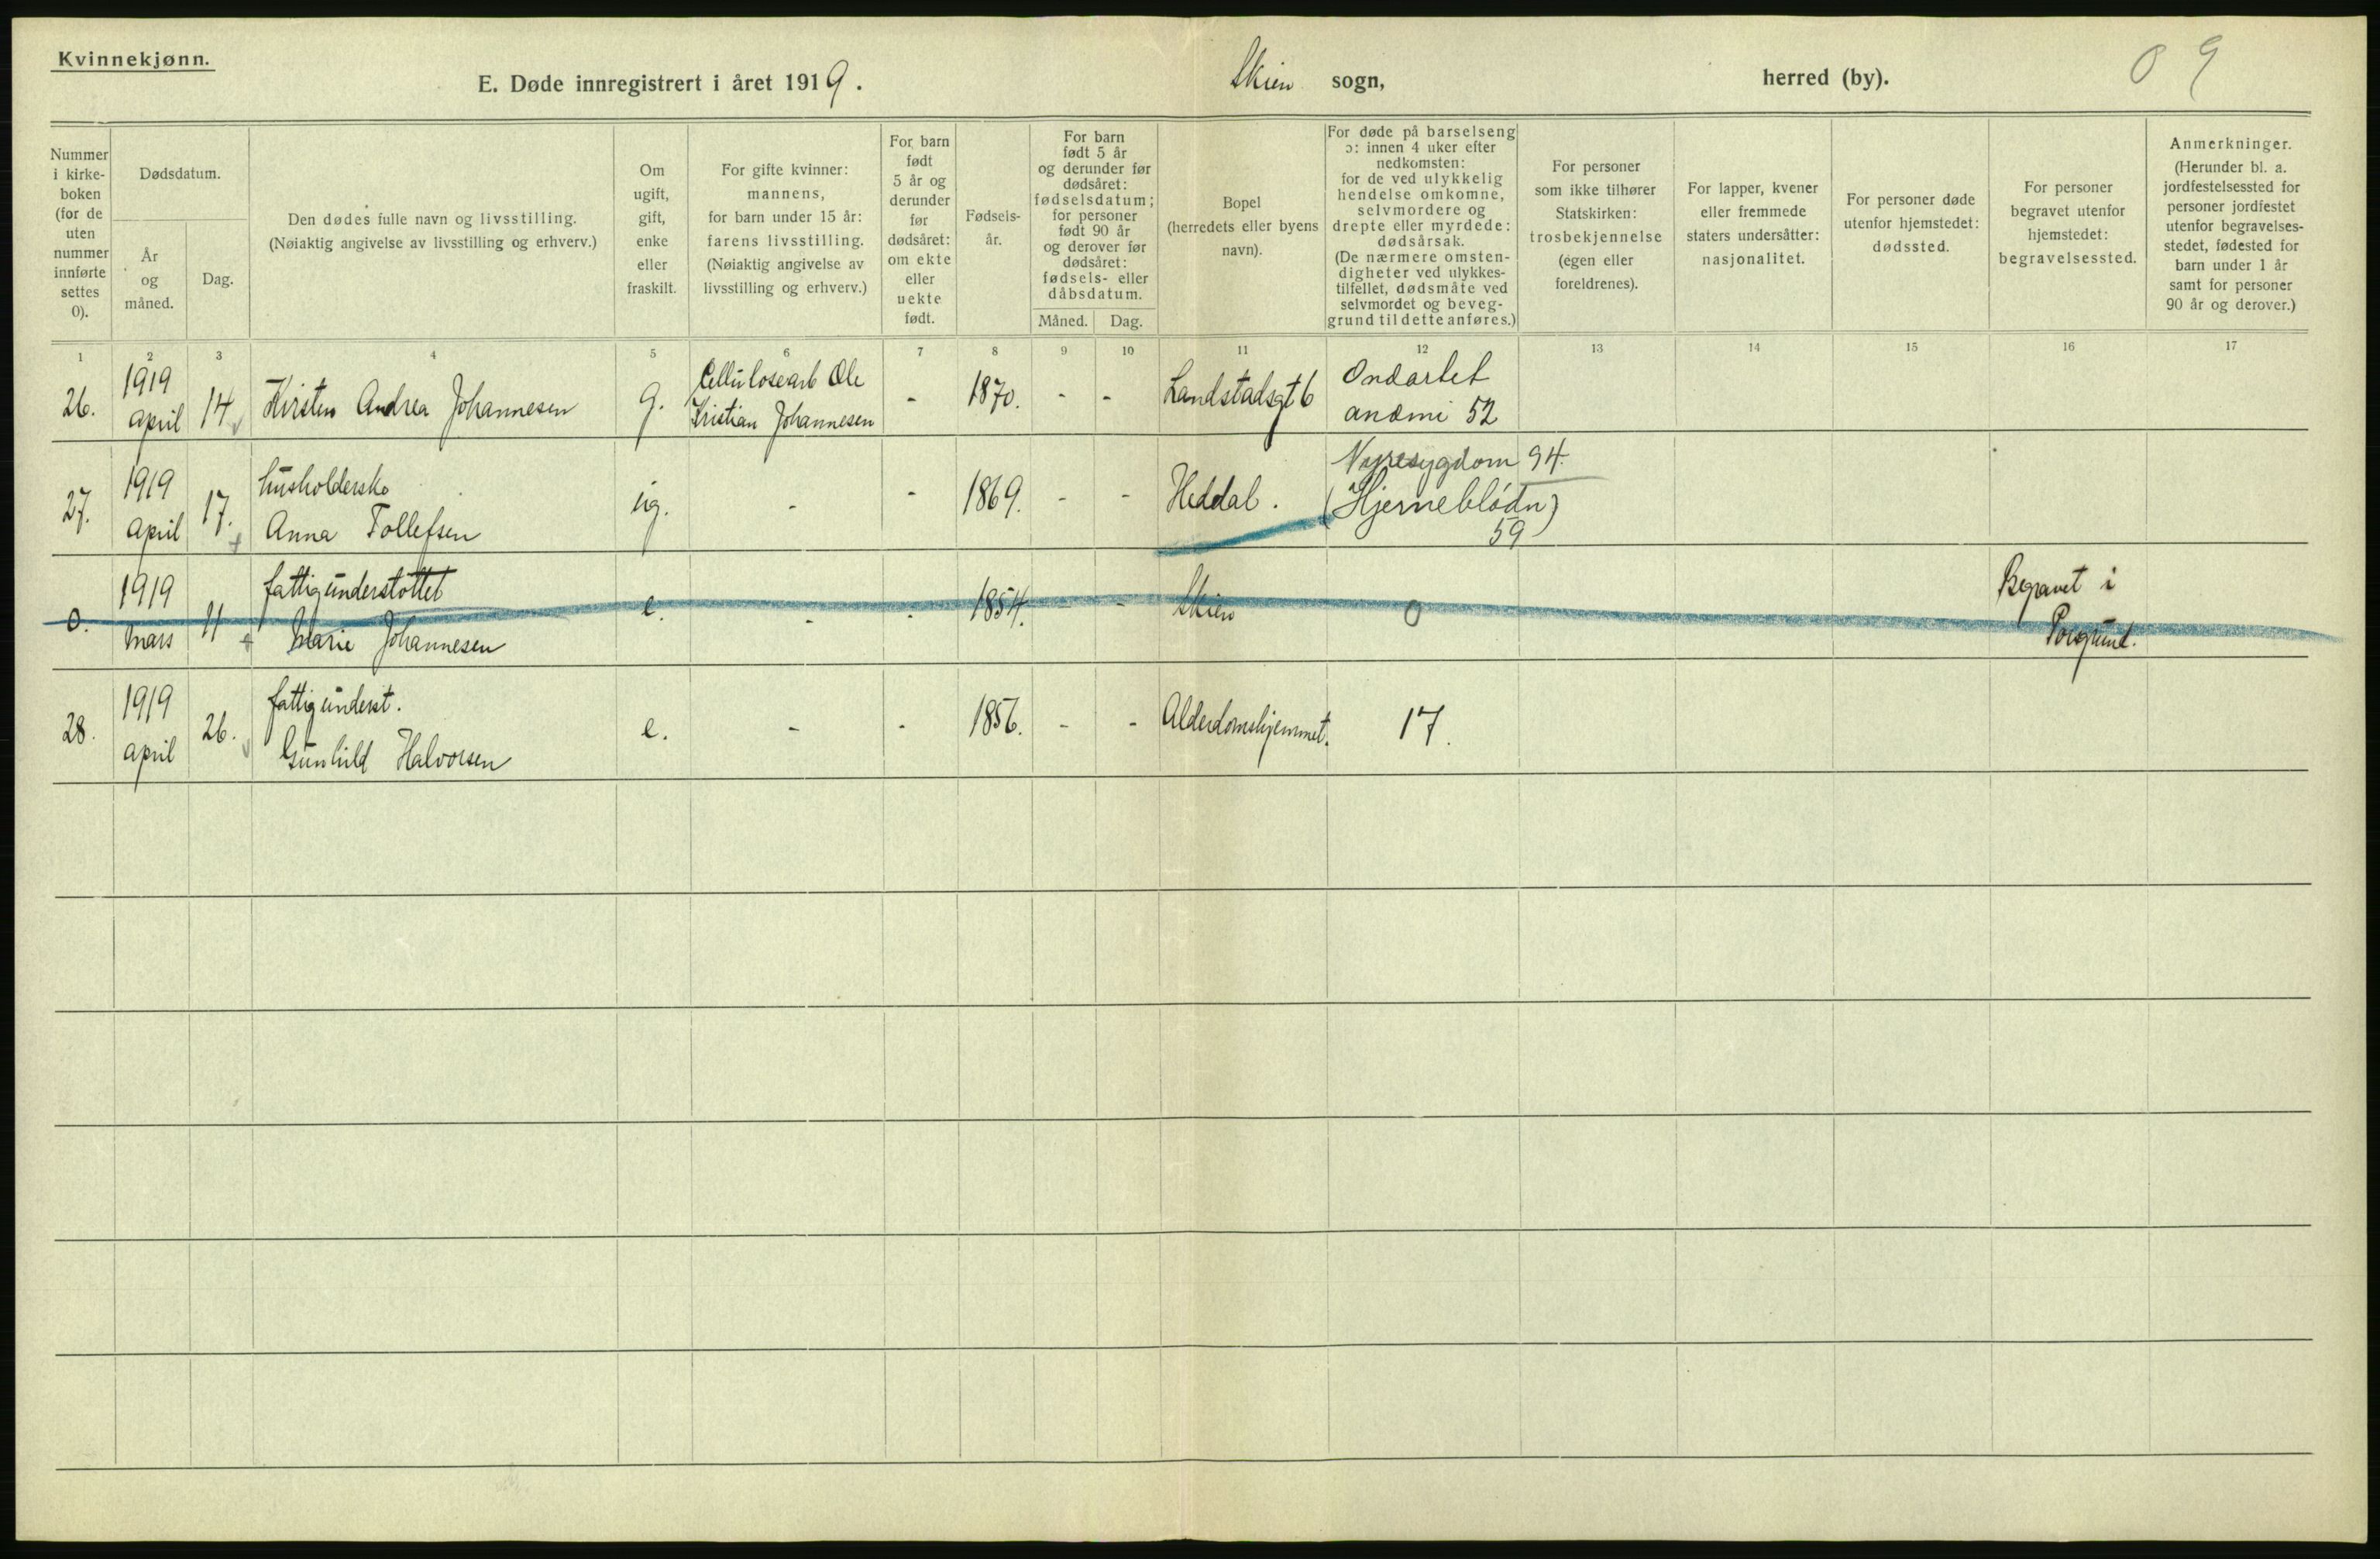 Kvinnekjønn.
E. Døde innregistrert i året 1919. Skien sogn, herred (by). 0 9
Nummer i kirke-boken (for de uten nummer innførte settes 0).
Dødsdatum.
År og måned.
Dag.
Den dødes fulle navn og livsstilling.
(Nøiaktig angivelse av livsstilling og erhverv.)
Om ugift, gift, enke eller fraskilt.
For gifte kvinner: mannens, for barn under 15 år: farens livsstilling. (Nøiaktig angivelse av livsstilling og erhverv.)
For barn født 5 år og derunder før dødsåret: om ekte eller uekte født.
Fødsels-år.
For barn født 5 år og derunder før dødsåret: fødselsdatum; for personer født 90 år og derover før dødsåret: fødsels- eller dåbsdatum.
Måned. Dag.
Bopel (herredets eller byens navn).
For døde på barselseng ɔ: innen 4 uker efter nedkomsten: for de ved ulykkelig hendelse omkomne, selvmordere og drepte eller myrdede: dødsårsak. (De nærmere omsten-digheter ved ulykkes-tilfellet, dødsmåte ved selvmordet og beveg-grund til dette anføres.)
For personer som ikke tilhører Statskirken: trosbekjennelse (egen eller foreldrenes).
For lapper, kvener eller fremmede staters undersåtter: nasjonalitet.
For personer døde utenfor hjemstedet: dødssted.
For personer begravet utenfor hjemstedet: begravelsessted.
Anmerkninger. (Herunder bl. a. jordfestelsessted for personer jordfestet utenfor begravelses-stedet, fødested for barn under 1 år samt for personer 90 år og derover.)
1 2 3 4 5 6 7 8 9 10 11 12 13 14 15 16 17
26. 1919 april 14 Kirsten Andrea Johannesen g. Cellulosearb Ole Kristian Johannesen - 1870. - - Landstadsgt 6 Ondartet anæmi 52
27. 1919 april 17. husholderske Anna Tollefsen ug. - - 1869. - - Heddal. Nyresygdom 94. (Hjerneblödn) 59
0. 1919 mars 11 fattigunderstöttet Marie Johannesen e. - - 1854. - - Skien 0 Begravet i Porsgrund.
28. 1919 april 26. fattigunderst. Gunhild Halvorsen e. - - 1856. - - Alderdomshjemmet. 17.